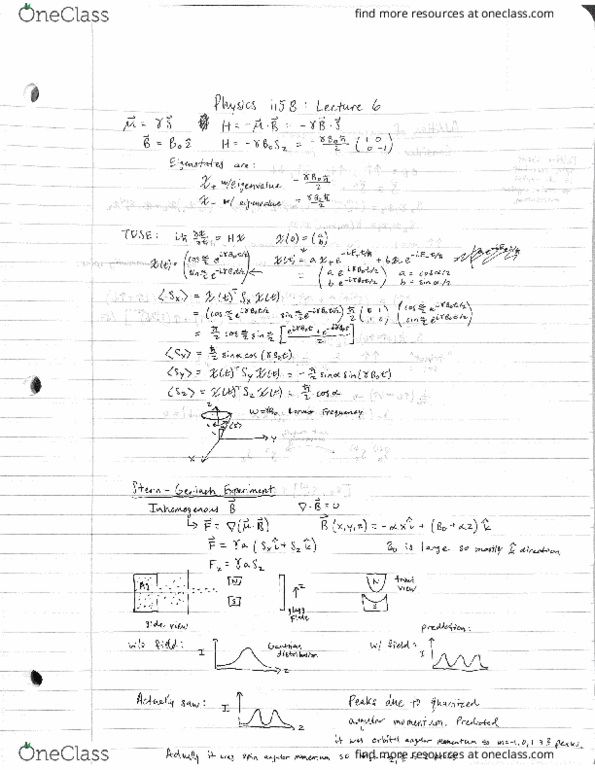 OneClass
find more resources at oneclass.com
Physics 115B: Lecture 6
μ⃗ = γS⃗ H = -μ⃗·B⃗ = -γB⃗·S⃗
B⃗ = B₀ẑ H = -γB₀S_z = -γB₀ħ/2 (1 0 / 0 -1)
Eigenstates are:
χ₊ w/ eigenvalue -γB₀ħ/2
χ₋ w/ eigenvalue
TDSE: iħ ∂χ/∂t = Hχ χ(0) = (a / b)
χ(t) = (cos α/2 e^{iγB₀t/2} / sin α/2 e^{-iγB₀t/2}) χ(t) = aχ₊e^{-iE₊t/ħ} + bχ₋e^{-iE₋t/ħ}
= (a e^{iγB₀t/2} / b e^{-iγB₀t/2}) a = cos α/2 b = sin α/2
⟨Sx⟩ = χ(t)† Sx χ(t)
= (cos α/2 e^{-iγB₀t/2} sin α/2 e^{iγB₀t/2}) ħ/2 (0 1 / 1 0) (cos α/2 e^{iγB₀t/2} / sin α/2 e^{-iγB₀t/2})
= ħ/2 cos α/2 sin α/2
= ħ/2 sinα cos(γB₀t)
⟨Sy⟩ = χ(t)† Sy χ(t) = -ħ/2 sinα sin(γB₀t)
⟨Sz⟩ = χ(t)† Sz χ(t) = ħ/2 cosα
z
⟨S⟩
ω = γB₀ Larmor Frequency
y
x
Stern-Gerlach Experiment
Inhomogenous B⃗ ∇·B⃗ = 0
↳ F⃗ = ∇(μ⃗·B⃗) B⃗(x,y,z) = -αxî + (B₀ + αz)k̂
F⃗ = γα(Sxî + Szk̂) B₀ is large so mostly k̂ direction
F = γαSz
Ag N ↑z N front view
S glass plate S
side view
prediction:
w/o field: I Gaussian distribution z w/ field: I
Actually saw: I z Peaks due to quantized
angular momentum. Predicted
it was orbital angular momentum so m=-1,0,1 → 3 peaks.
Actually it was spin angular momentum so
OneClass
find more resources at oneclass.com